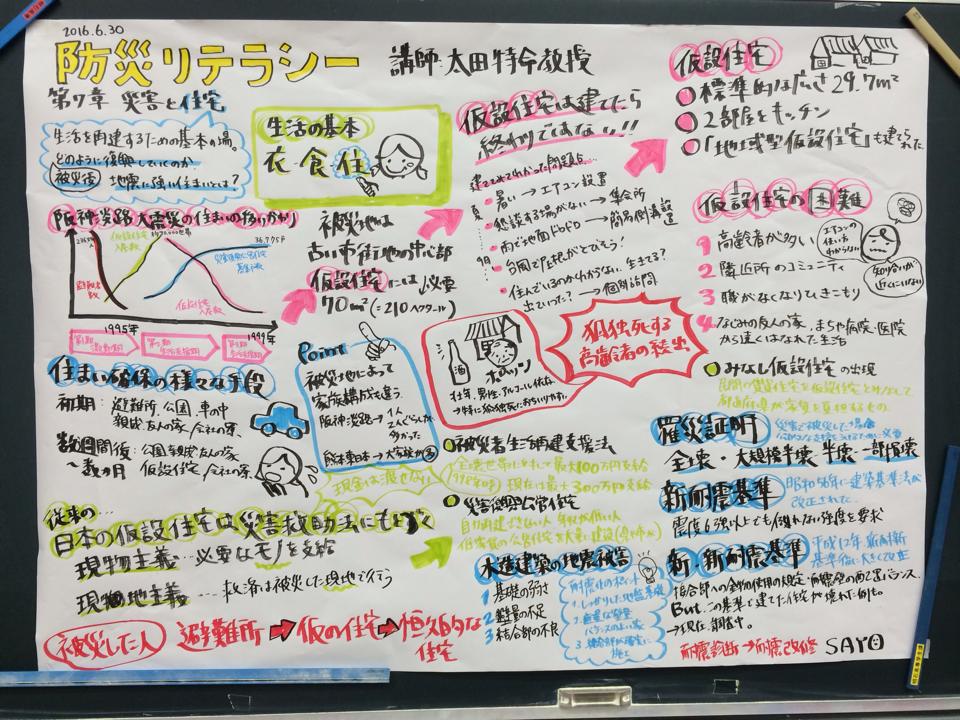 2016.6.30
防災リテラシー
講師:太田特令教授
第7章 災害と住宅
生活を再建するための基本の場。
どのように復興していくのか
被災後 地震に強い住まいとは?
生活の基本
衣・食・住
仮設住宅は建てたら
終わりではない!!
建ててみてわかった問題点…
夏 暑い→エアコン設置
懇談する場がない→集会所
台風で屋根がとびそう!
住んでいるのかわからない。生きてる?
出ていった?→個別訪問
仮設住宅
標準的な広さ 29.7m²
2部屋とキッチン
「地域型仮設住宅」も建てられた
阪神・淡路大震災の住まいの移りかわり
仮設住宅
入居数
避難者数
仮設住宅
入居数
1995年
1999年
被災地は
古い市街地の中心部
仮設住宅には
70m²(=210ヘクタール)必要
仮設住宅の困難
1 高齢者が多い
2 隣近所のコミュニティ
3 職がなくなりひきこもり
4 なじみの友人の家、まちや病院・医院
から遠くはなれた生活
エアコンの
使い方
わからない
知り合いが
近くにいない
住まい確保の様々な手段
初期:避難所、公園、車の中
親戚・友人の家/会社の寮、
数週間後
〜数ヵ月
:公園、親戚・友人の家
仮設住宅、会社の寮、
Point
被災地によって
家族構成も違う
阪神淡路→1人
ぐらしが
多かった
熊本東日本→大家族が多い
酒
孤独死する
高齢者の続出。
みなし仮設住宅の出現
民間の賃貸住宅を仮設住宅とみなして
都道府県が家賃を負担するもの
罹災証明
災害で被災した場合
全壊・大規模半壊・半壊・一部損壊
新耐震基準
昭和56年に建築基準法が
改正された
震度6強以上でも倒れない強度を要求
新・新耐震基準
平成12年、耐震
基準値、大きく改正
結合部への金物使用の規定・耐震壁の配置バランス。
But…この基準で建てた住宅が壊れた例も。
→現在、調査中。
耐震診断→耐震改修
SAYO
被災者生活再建支援法
全壊世帯に対して最大100万円を支給
(1998年時)現在は最大300万円支給
現金は渡せない
災害復興公営住宅
自力再建できない人 年収が低い人
従来の…
日本の仮設住宅は災害救助法にもとづく
現物主義…必要なモノを支給
現地主義…救済は被災した現地で行う
木造建築の地震被害
1 基礎の弱さ
2 壁量の不足
3 結合部の不良
耐震化のポイント
1. しっかりした地盤・基礎
2. 適量な壁量
バランスのよい家
3. 結合部が確実に
被災した人 避難所→仮の住宅→恒久的な
住宅